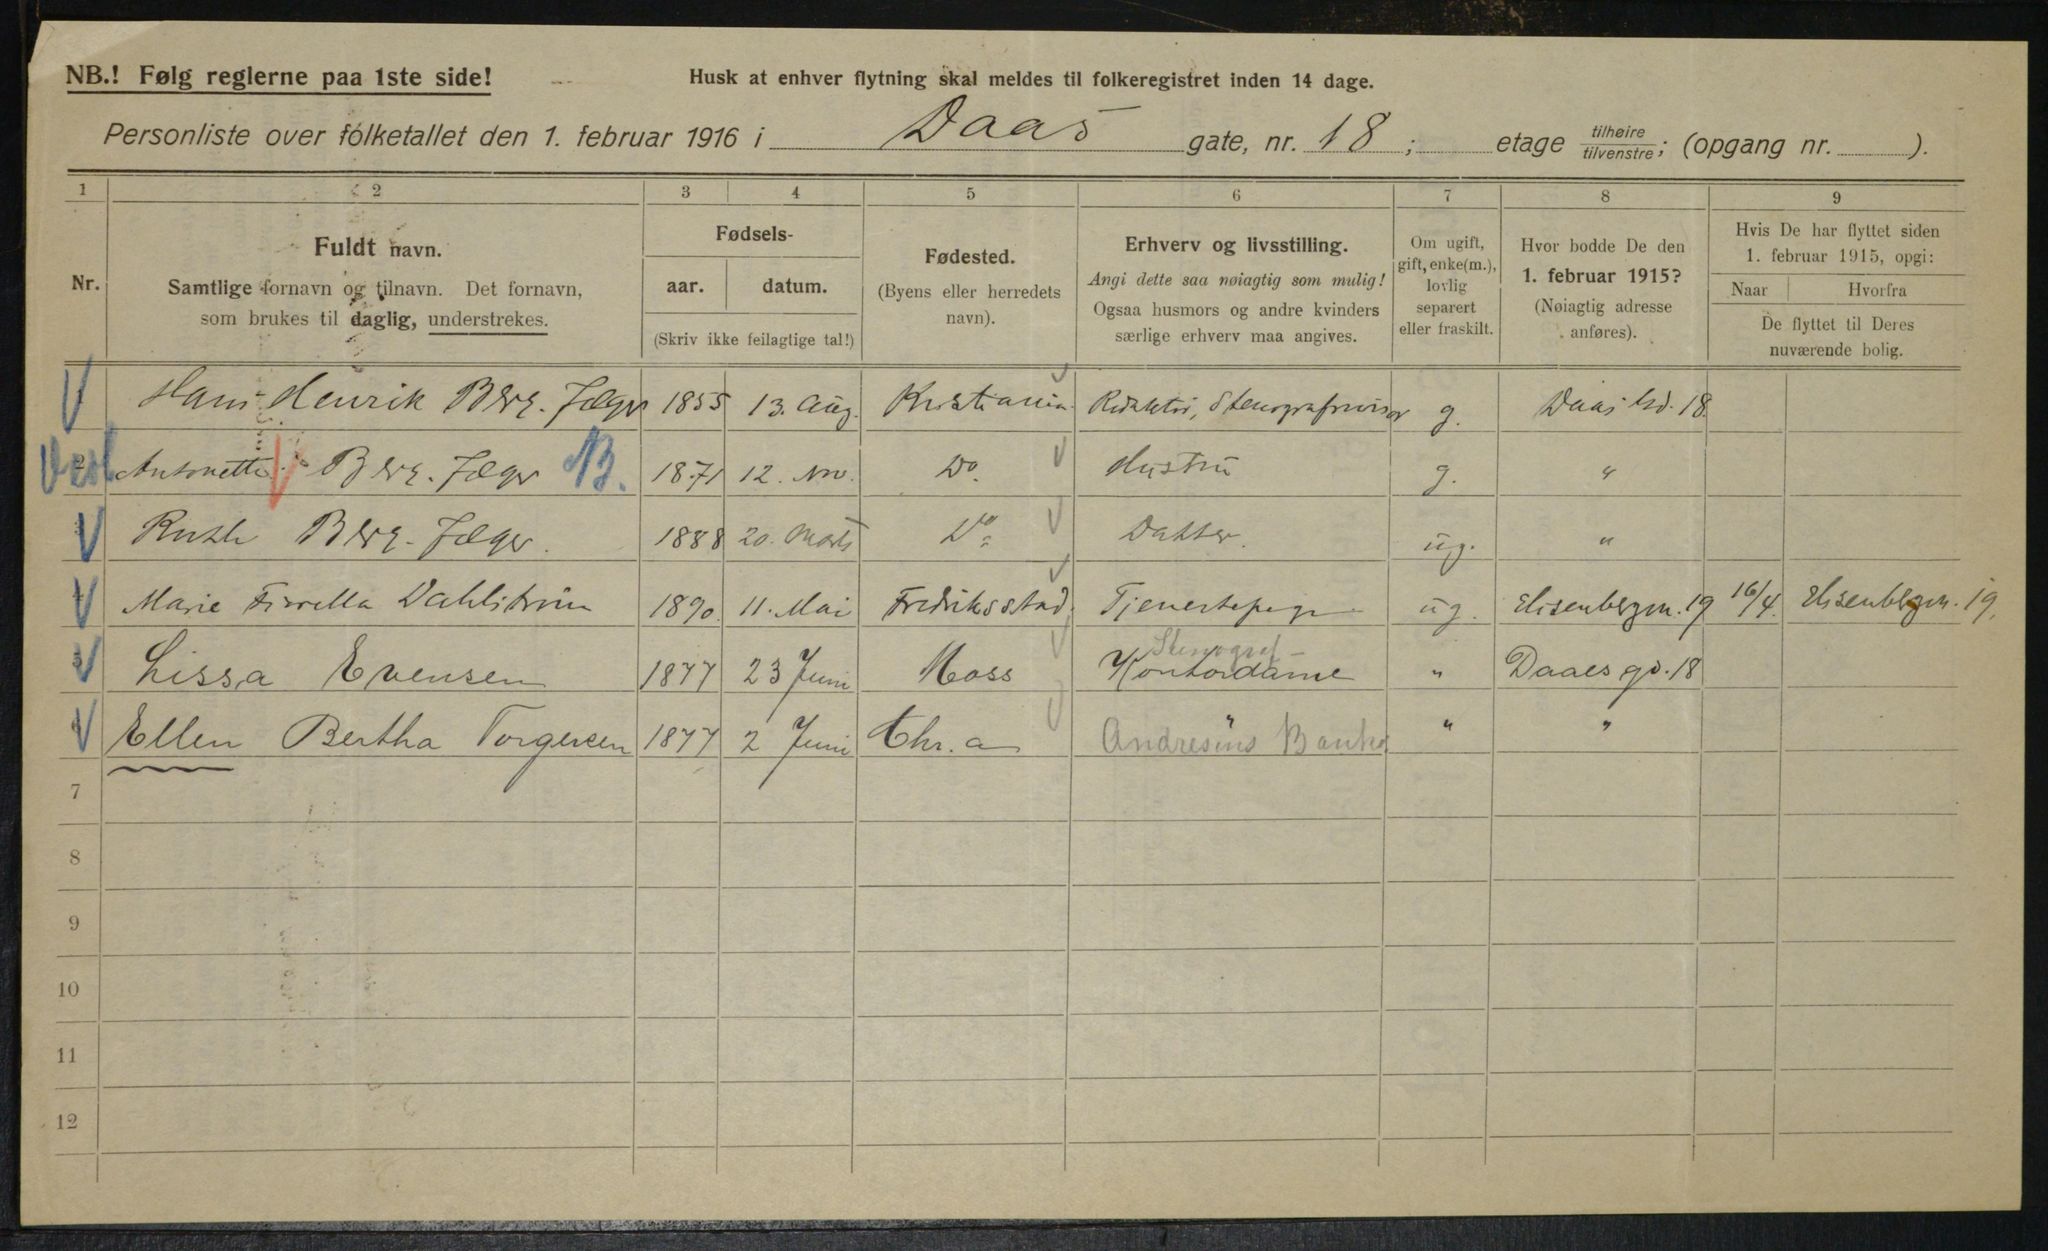 NB.! Følg reglerne paa 1ste side! Husk at enhver flytning skal meldes til folkeregistret inden 14 dage.
Personliste over folketallet den 1. februar 1916 i Daas gate, nr. 18; etage tilhøire/tilvenstre; (opgang nr. ).
1 2 3 4 5 6 7 8 9
Nr.
Fuldt navn.
Samtlige fornavn og tilnavn. Det fornavn,
som brukes til daglig, understrekes.
Fødsels-
aar. datum.
(Skriv ikke feilagtige tal!)
Fødested.
(Byens eller herredets
navn).
Erhverv og livsstilling.
Angi dette saa nøiagtig som mulig!
Ogsaa husmors og andre kvinders
særlige erhverv maa angives.
Om ugift,
gift, enke(m.),
lovlig
separert
eller fraskilt.
Hvor bodde De den
1. februar 1915?
(Nøiagtig adresse
anføres).
Hvis De har flyttet siden
1. februar 1915, opgi:
Naar Hvorfra
De flyttet til Deres
nuværende bolig.
Hans Henrik Berg-Jæger 1855 13. Aug. Kristiania Redaktør, g. Daas gd. 18
Antonette Berg-Jæger B. 1871 12. Nov. Do. Hustru g. "
Ruth Berg-Jæger. 1888 20. Marts Do Datter. ug. "
Marie Dahlstrøm 1890. 11. Mai Fredriksstad. Tjenestepige ug. Elisenbergvn. 19 16/4. Elisenbergvn. 19.
Stenograf
Lissa Evensen 1877 23 Juni Moss Kontordame " Daaes gd. 18
Ellen Bertha Torgersen 1877 2 Juni Chr.a " Andresens Bank " "
7
8
9
10
11
12